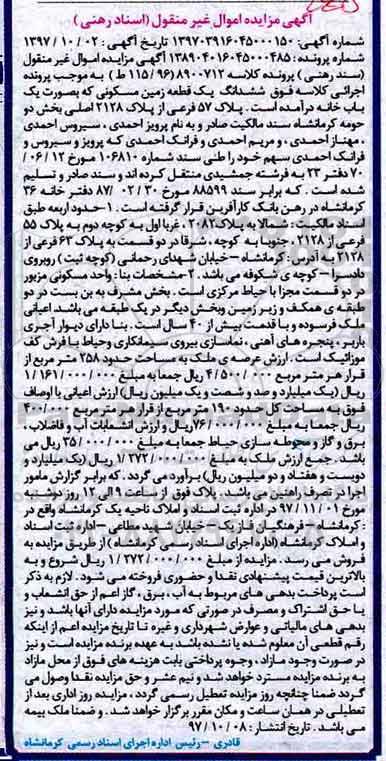 آگهی مزایده اموال غیر منقول (اسناد رهنی)
شماره آگهی: ۱۳۹۷۰۳۹۱۶۰۴۵۰۰۰۱۵۰ تاریخ آگهی: ۱۳۹۷/۱۰/۰۲
شماره پرونده: ۱۳۸۹۰۴۰۱۶۰۴۵۰۰۰۴۸۵ آگهی مزایده اموال غیر منقول
(سند رهنی) پرونده کلاسه ۸۹۰۰۷۱۲ (۱۱۵/۹۶ ط) به موجب پرونده
اجرائی کلاسه فوق ششدانگ یک قطعه زمین مسکونی که بصورت یک
باب خانه درآمده است. پلاک ۵۷ فرعی از پلاک ۲۱۲۸ اصلی بخش دو
حومه کرمانشاه سند مالکیت صادر و به نام پرویز احمدی، سیروس احمدی
، مهناز احمدی، و مریم احمدی و فرانک احمدی که پرویز و سیروس و
فرانک احمدی سهم خود را طی سند شماره ۱۰۶۸۱۰ مورخ ۱۲/۰۶/
۷۰ دفتر ۲۳ به فرشته جمشیدی منتقل کرده اند و سند صادر و تسلیم
شده است. که برابر سند ۸۸۵۹۹ مورخ ۳۰/۰۲/۸۷ دفتر خانه ۳۶
کرمانشاه در رهن بانک کارآفرین قرار گرفته است. ۱-حدود اربعه طبق
اسناد مالکیت: شمالا به پلاک ۲۰۸۲، غربا اول به کوچه دوم به پلاک ۵۵
فرعی از ۲۱۲۸، جنوبا به کوچه، شرقا در دو قسمت به پلاک ۶۳ فرعی از
۲۱۲۸ به آدرس: کرمانشاه – خیابان شهدای رحمانی (کوچه ثبت) روبروی
دادسرا – کوچه ی شکوفه می باشد. ۲-مشخصات بنا: واحد مسکونی مزبور
در دو قسمت مجزا با حیاط مرکزی است. بخش مشرف به بن بست در دو
طبقه ی همکف و زیر زمین وبخش دیگر در یک طبقه می باشد اعیانی
ملک فرسوده و با قدمت بیش از ۴۰ سال است. بنا دارای دیوار آجری
باربر، پنجره های آهنی، نماسازی بیروی سیمانکاری وحیاط با فرش کف
موزائیک است. ارزش عرصه ی ملک به مساحت حدود ۲۵۸ متر مربع از
قرار هر متر مربع ۴/۵۰۰/۰۰۰ ریال جمعا به مبلغ ۱/۱۶۱/۰۰۰/۰۰۰
ریال (یک میلیارد و صد و شصت و یک میلیون ریال) ارزش اعیانی با اوصاف
فوق به مساحت کل حدود ۱۹۰ متر مربع از قرار هر متر مربع ۴۰۰/۰۰۰
ریال جمعا به مبلغ ۷۶/۰۰۰/۰۰۰ ریال و ارزش انشعابات آب و فاضلاب،
برق و گاز و محوطه سازی حیاط جمعا به مبلغ ۳۵/۰۰۰/۰۰۰ ریال می
باشد. جمع ارزش ملک به مبلغ ۱/۲۷۲/۰۰۰/۰۰۰ ریال (یک میلیارد و
دویست و هفتاد و دو میلیون ریال) برآورد می گردد. که برابر گزارش مامور
اجرا در تصرف راهنین می باشد. پلاک فوق از ساعت ۹ الی ۱۲ روز دوشنبه
مورخ ۹۷/۱۱/۰۱ در اداره ثبت اسناد و املاک ناحیه یک کرمانشاه واقع در
: کرمانشاه – فرهنگیان فاز یک – خیابان شهید مطاعی – اداره ثبت اسناد
و املاک کرمانشاه (اداره اجرای اسناد رسمی کرمانشاه) از طریق مزایده به
فروش می رسد. مزایده از مبلغ ۱/۲۷۲/۰۰۰/۰۰۰ ریال شروع و به
بالاترین قیمت پیشنهادی نقدا و حضوری فروخته می شود. لازم به ذکر
است پرداخت بدهی های مربوط به آب، برق، گاز اعم از حق انشعاب و
یا حق اشتراک و مصرف در صورتی که مورد مزایده دارای آنها باشد و نیز
بدهی های مالیاتی و عوارض شهرداری و غیره تا تاریخ مزایده اعم از اینکه
رقم قطعی آن معلوم شده یا نشده باشد به عهده برنده مزایده است و نیز
در صورت وجود مازاد، وجوه پرداختی بابت هزینه های فوق از محل مازاد
به برنده مزایده مسترد خواهد شد و نیم عشر و حق مزایده نقدا وصول می
گردد ضمنا چنانچه روز مزایده تعطیل رسمی گردد، مزایده روز اداری بعد از
تعطیلی در همان ساعت و مکان مقرر برگزار خواهد شد. و ضمنا ملک بیمه
می باشد. تاریخ انتشار: ۹۷/۱۰/۰۸
قادری – رئیس اداره اجرای اسناد رسمی کرمانشاه